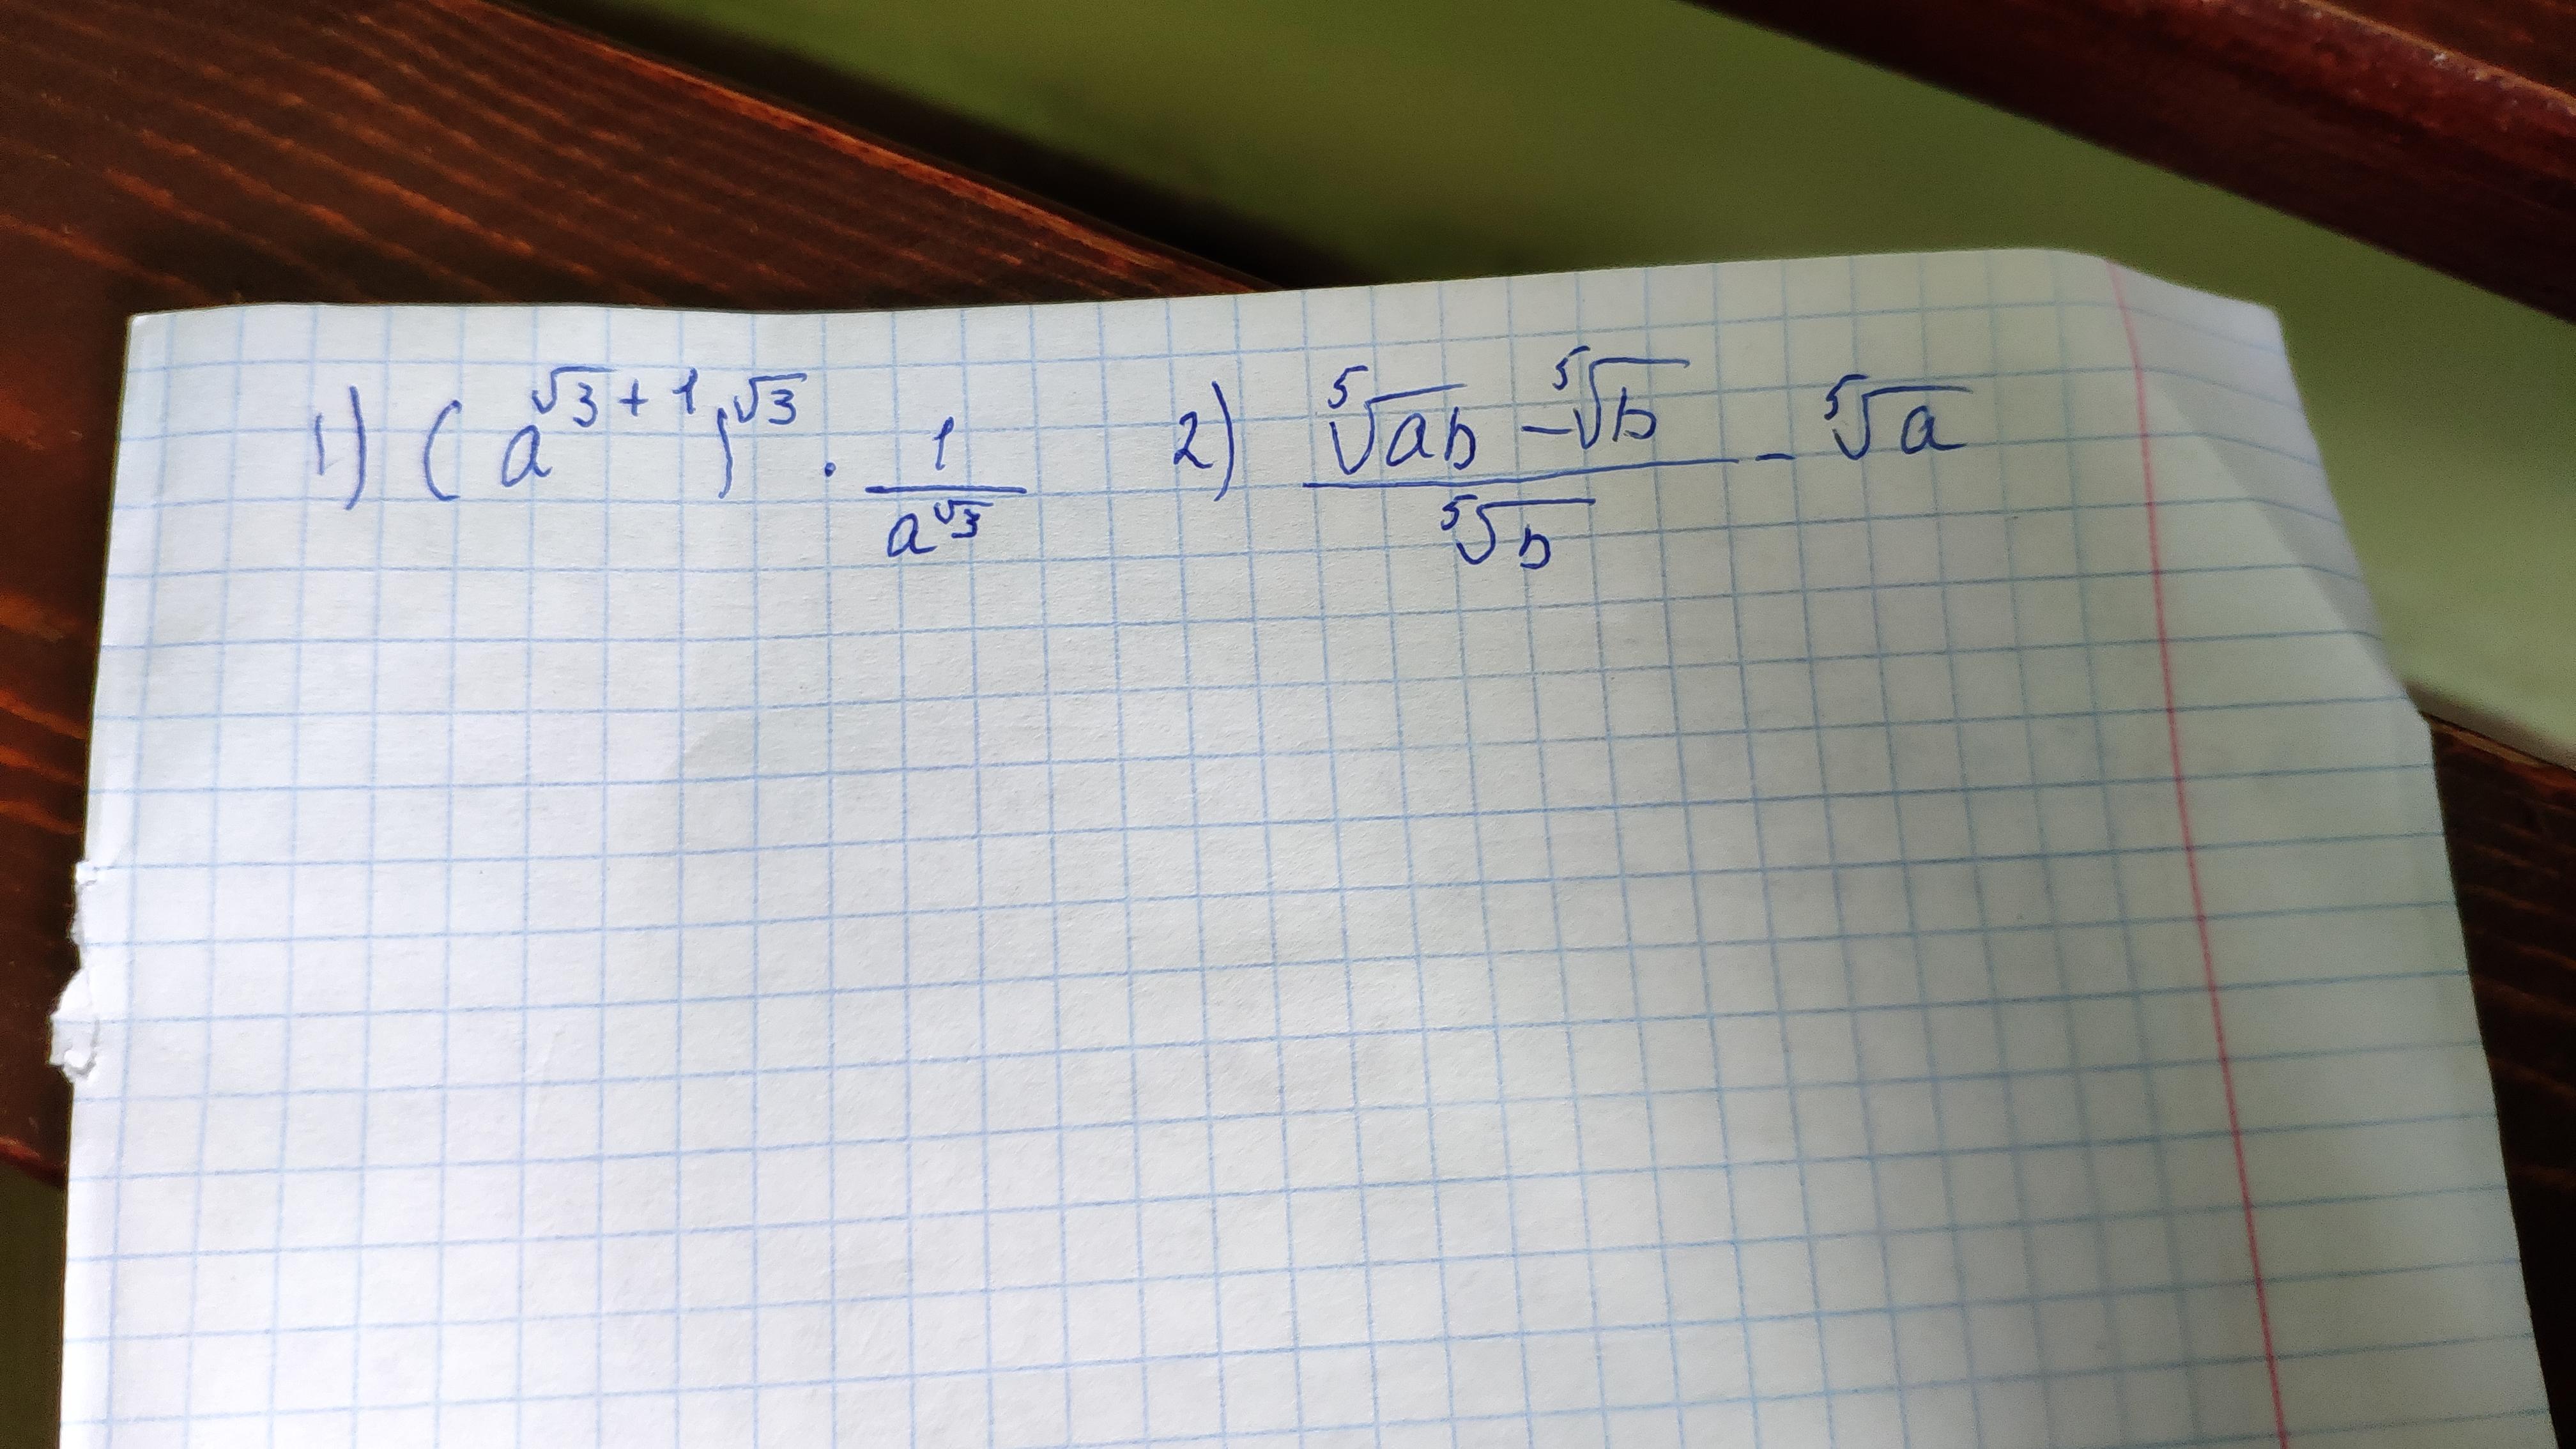 1) (a^{√3+1})^{√3} · \frac{1}{a^{√3}}  2) \frac{\sqrt[5]{ab} - \sqrt[5]{b}}{\sqrt[5]{b}} - \sqrt[5]{a}